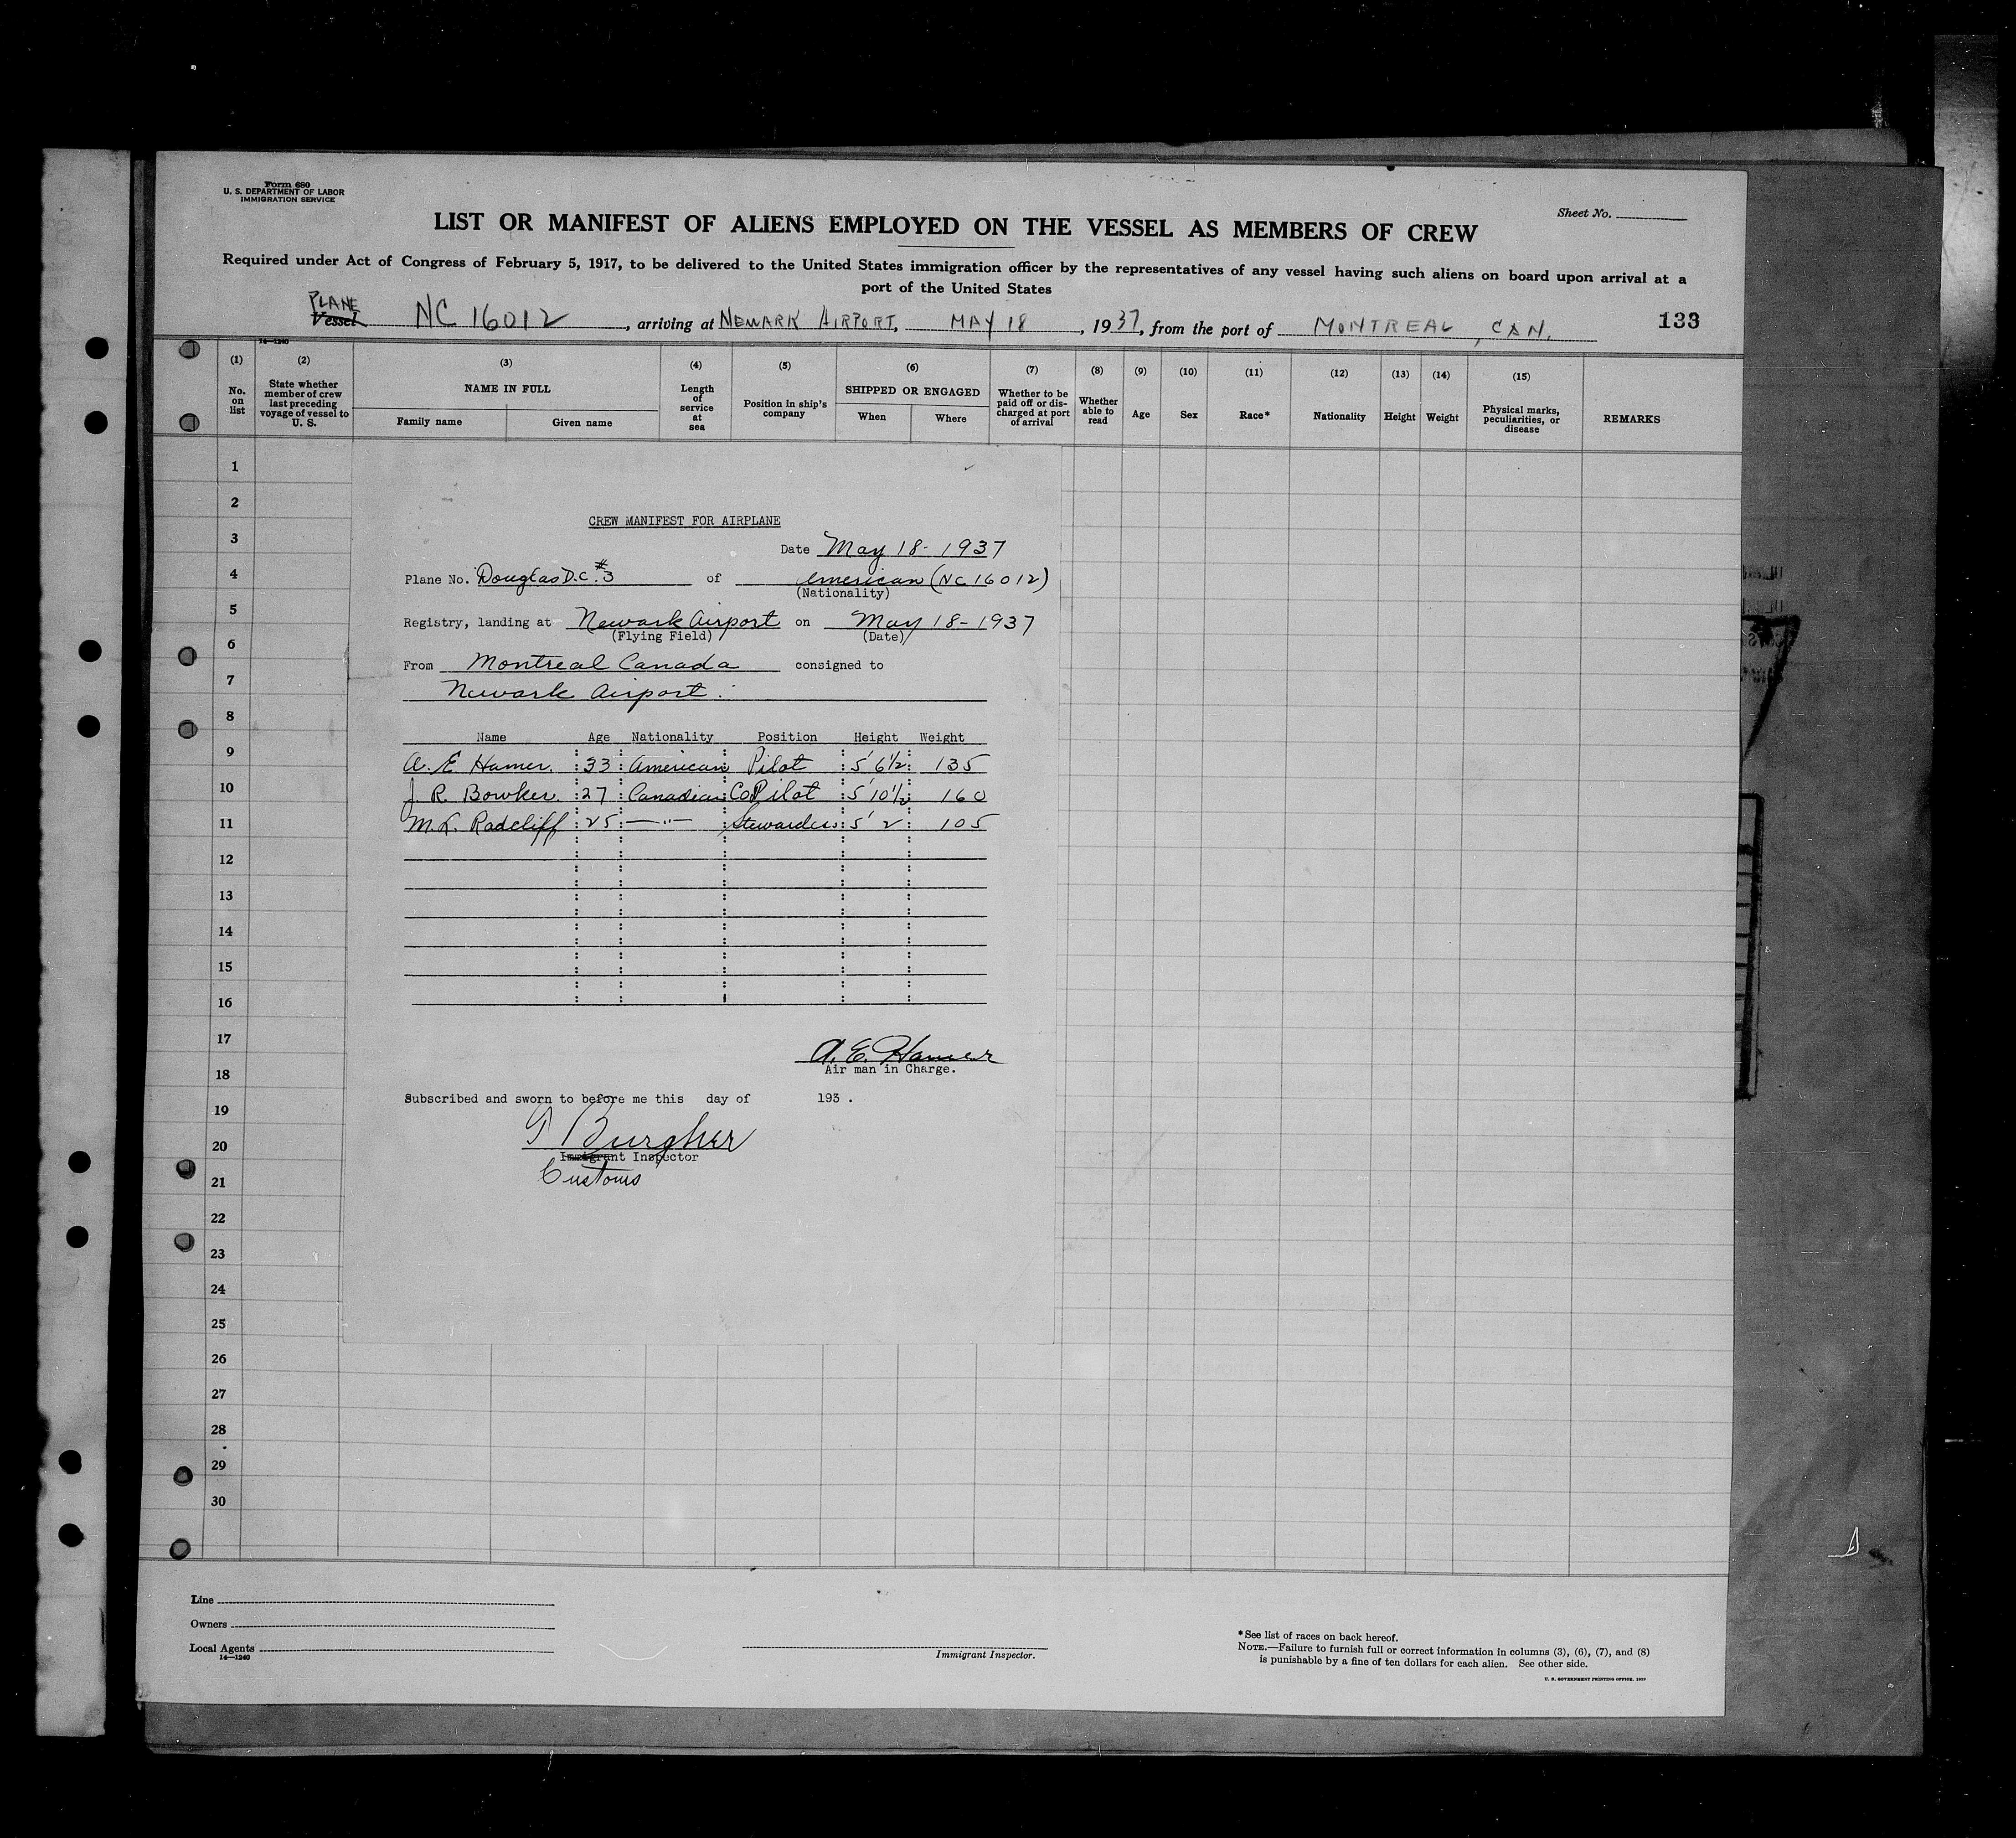 Form 680
U. S. DEPARTMENT OF LABOR
IMMIGRATION SERVICE
Sheet No.
LIST OR MANIFEST OF ALIENS EMPLOYED ON THE VESSEL AS MEMBERS OF CREW
Required under Act of Congress of February 5, 1917, to be delivered to the United States immigration officer by the representatives of any vessel having such aliens on board upon arrival at a
port of the United States
PLANE
Vessel NC 16012, arriving at NEWARK AIRPORT, MAY 18, 1937, from the port of MONTREAL, CAN. 133
14—1240
(1) (2) (3) (4) (5) (6) (7) (8) (9) (10) (11) (12) (13) (14) (15)
No. on list
State whether member of crew last preceding voyage of vessel to U. S.
NAME IN FULL
Family name Given name
Length of service at sea
Position in ship's company
SHIPPED OR ENGAGED
When Where
Whether to be paid off or discharged at port of arrival
Whether able to read
Age
Sex
Race*
Nationality
Height
Weight
Physical marks, peculiarities, or disease
REMARKS
1
2
3
4
5
6
7
8
9
10
11
12
13
14
15
16
17
18
19
20
21
22
23
24
25
26
27
28
29
30
CREW MANIFEST FOR AIRPLANE
Date May 18-1937
Plane No. Douglas D.C. #3 of American (NC 16012)
(Nationality)
Registry, landing at Newark Airport on May 18-1937
(Flying Field) (Date)
From Montreal Canada consigned to
Newark Airport.
Name Age Nationality Position Height Weight
A. E Hamer. 33 American Pilot 5' 6½ 135
J. R. Bowker. 27 Canadian CoPilot 5' 10½ 160
M. L. Radcliff 25 — " — Stewardess 5' 2 105
A. E. Hamer
Air man in Charge.
Subscribed and sworn to before me this day of 193 .
Burgher
Immigrant Inspector
Customs
Line
Owners
Local Agents
14—1240
Immigrant Inspector.
*See list of races on back hereof.
NOTE.—Failure to furnish full or correct information in columns (3), (6), (7), and (8)
is punishable by a fine of ten dollars for each alien. See other side.
U. S. GOVERNMENT PRINTING OFFICE.